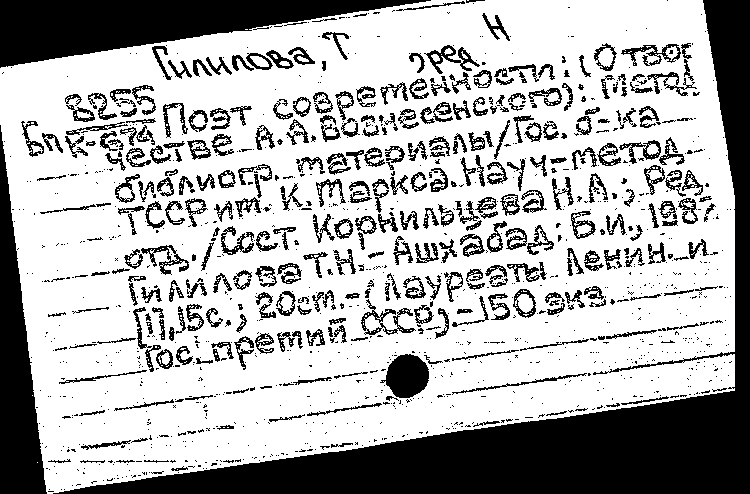 Гилилова, Т Н
ред.
8255 Поэт современности: (О твор
Бп К-674 честве А.А.Вознесенского): Метод
библиогр. материалы/Гос. б-ка
ТССР им. К. Маркса. Науч.-метод.
отд./Сост. Корнильцева Н.А.; Ред.
Гилилова Т.Н.- Ашхабад: Б.и., 1987
[1],15с.; 20см.-(Лауреаты Ленин. и
Гос. премий СССР).-150 экз.